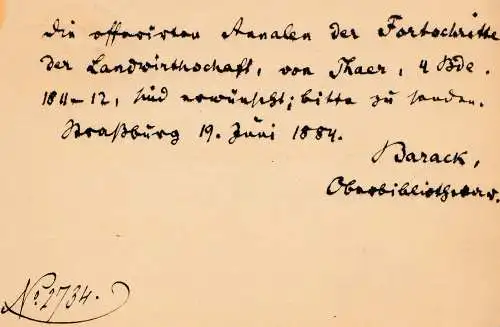 Die offerirten Annalen der Fortschritte
der Landwirthschaft, von Thaer, 4 Bde.
1811-12, sind erwünscht; bitte zu senden.
Straßburg 19. Juni 1884.
Barack,
Oberbibliothekar.
No. 2734.